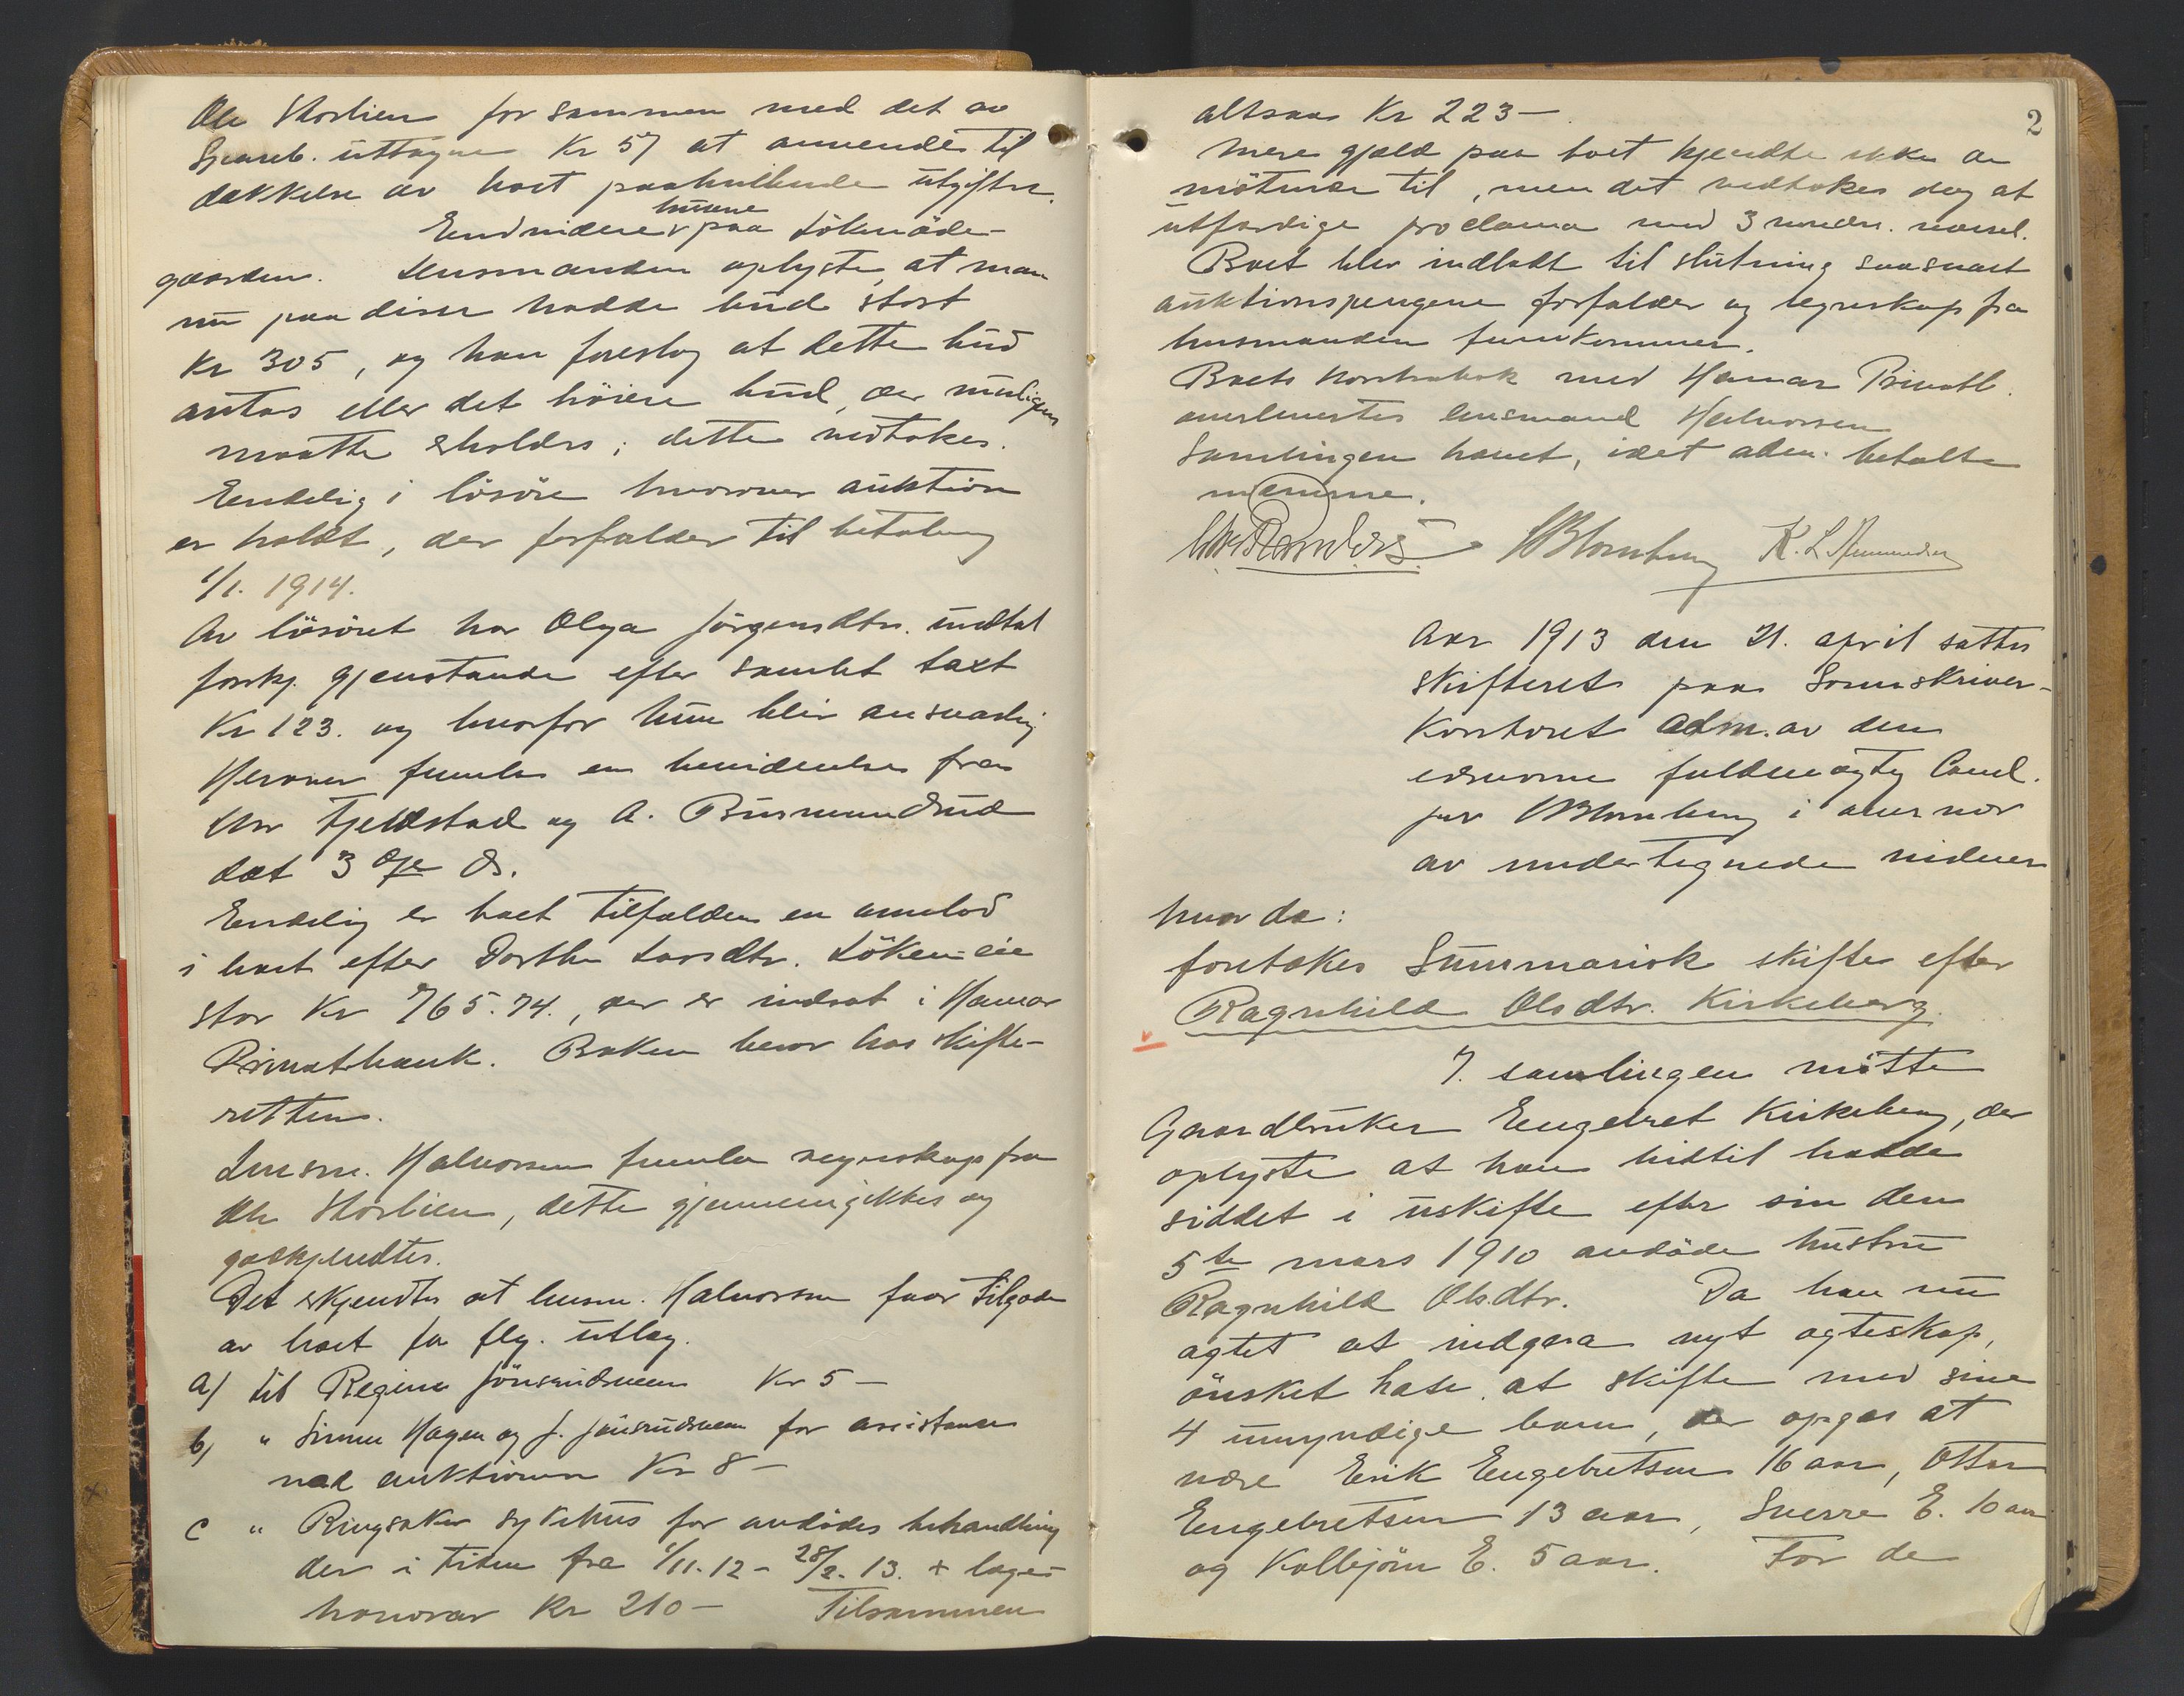 Ole Storlien for sammen med det av
Spareb. uttagne Kr 57 at anvendes til
dækkelse av boet paahvilende utgifter.
Endvidere husene paa Lökenöde-
gaarden. Lensmanden oplyste, at man
nu paa disse hadde bud stort
Kr 305, og han foreslog at dette bud
antas eller det höiere bud, der muligens
maatte erholdes; dette vedtokes.
Endelig i lösöre hvorover auktion
er holdt, der forfalder til betaling
1/1. 1914.
Av lösöret har Olga Jörgensdtr. undtat
forskj. gjenstande efter samlet taxt
Kr 123. og hvorfor hun blir ansvarlig
Herover fremlæ en henvendelse fra
Tjeldstad og A. Busmundrud
dat 3 ds.
Endelig er boet tilfalden en arvelod
i boet efter Dorthe Larsdtr. Löken-eie
stor Kr 765.74., der er indsat i Hamar
Privatbank. Boken beror hos skifte-
retten.
Lensm. Halvorsen fremla regnskap fra
Ole Storlien, dette gjennemgikkes og
godkjendtes.
Det erkjendtes at lensm. Halvorsen faar tilgode
av boet for flg. utlæg.
a) til Regine Jönsrudsveen Kr 5 —
b) " Simen Hagen og J. Jönsrudsveen for assistance
ved auktionen Kr 8 —
c " Ringsaker sykehus for avdödes behandling
der i tiden fra 1/11.12 - 28/2. 13. + læge-
honorar Kr 210 — Tilsammen
2
altsaa Kr 223 —.
Mere gjæld paa boet kjendte ikke de
mötende til, men det vedtokes dog at
utfærdige proclama med 3 mndrs. varsel.
Boet blev indladt til slutning saasnart
auktionspengene forfalder og regnskap fra
lensmanden fremkommer.
Boets kontrabok med Hamar Privatb.
overlevertes lensmand Halvorsen
Samlingen hævet, idet adm. betalte
vidnerne.
Blomberg K. L. Amundsen
Aar 1913 den 21. april sattes
skifteret paa Sorenskriver-
kontoret adm. av den
edsvorne fuldmægtig Cand.
jur Blomberg i overvær
av undertegnede vidner
hvor da:
foretokes Summarisk skifte efter
Ragnhild Olsdtr. Kirkeberg.
I samlingen mötte
Gaardbruker Engebret Kirkeberg, der
oplyste at han hidtil hadde
siddet i uskifte efter sin den
5te mars 1910 avdöde hustru
Ragnhild Olsdtr. Da han nu
agtet at indgaa nyt egteskap,
önsket han at skifte med sine
4 umyndige barn, der opgas at
være Erik Engebretsen 16 aar, Ottar
Engebretsen 13 aar, Sverre E. 10 aar
og Kolbjörn E. 5 aar. For de